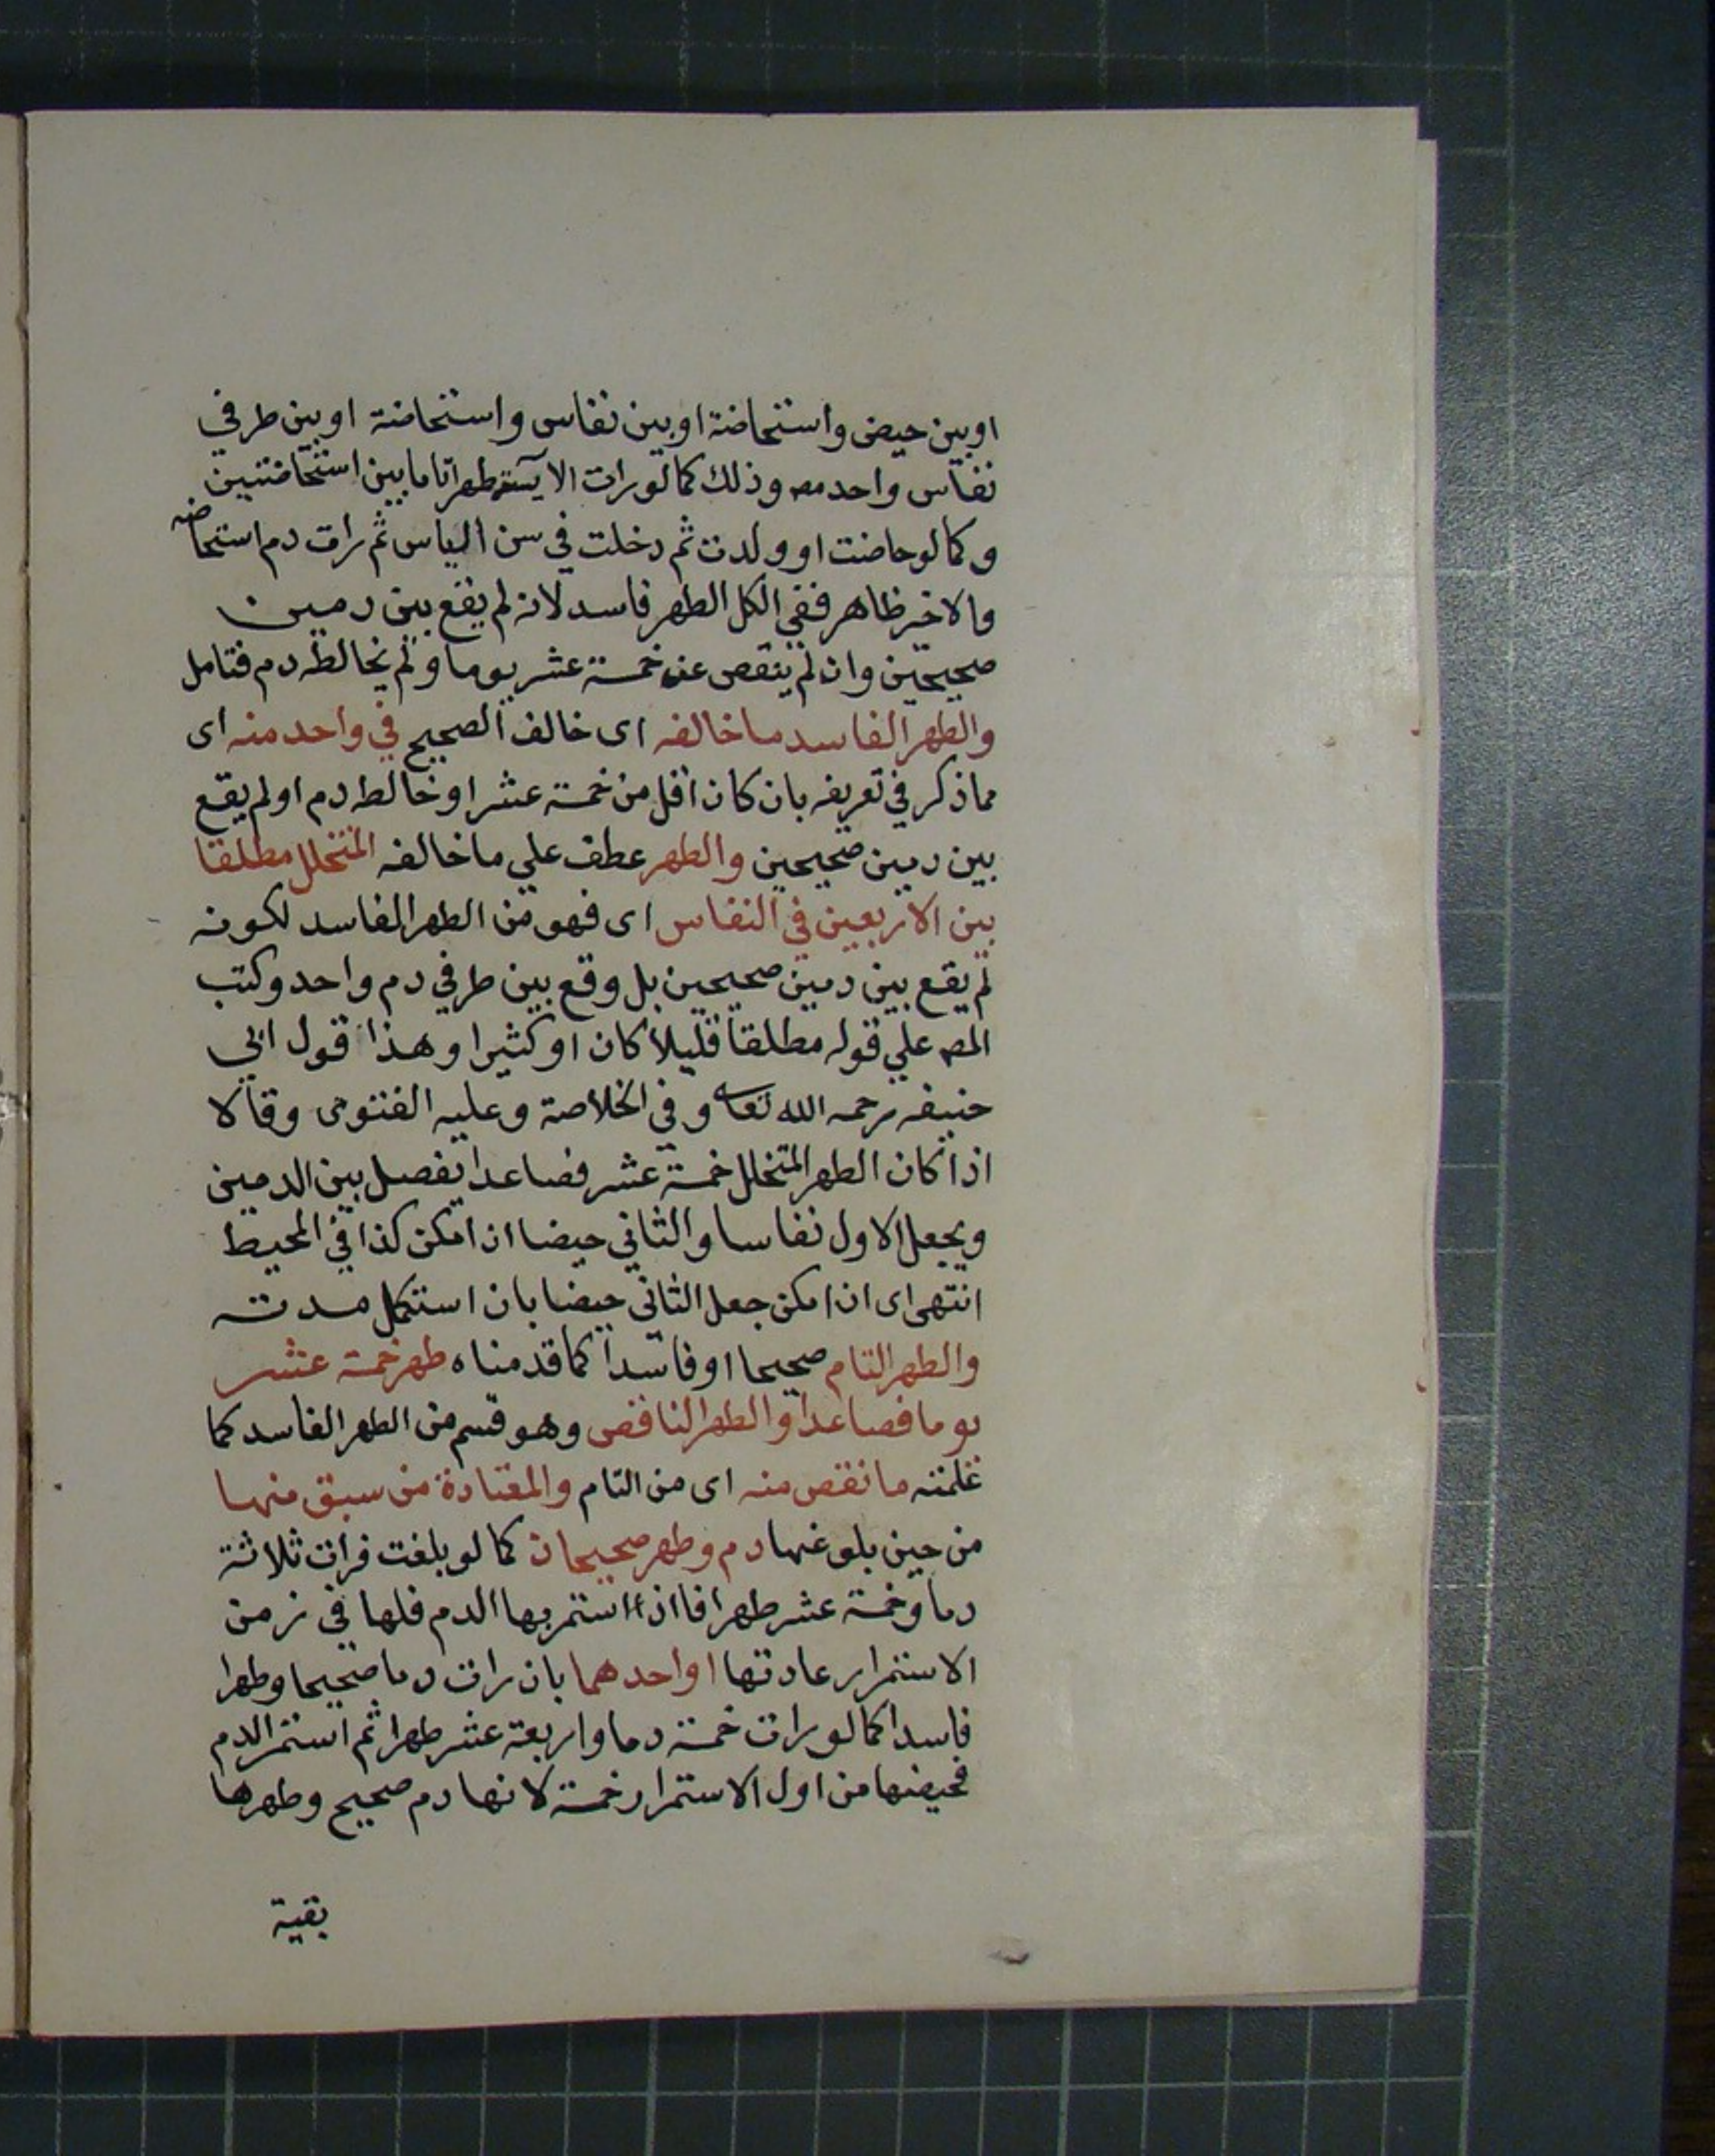 او بين حيض واستحاضة او بين نفاس واستحاضة او بين طرفي
نفاس واحد مص وذلك كما لو رات الايسة طهرا تاما بين استحاضتين
وكما لو حاضت او ولدت ثم دخلت في سن الياس ثم رات دم استحاضه
والاخير ظاهر ففي الكل الطهر فاسد لانه لم يقع بين دمين
صحيحين وان لم ينقص عن خمسة عشر يوما ولم يخالطه دم فتامل
والطهر الفاسد ما خالفه اى خالف الصحيح في واحد منه اى
مما ذكر في تعريفه بان كان اقل من خمسة عشر او خالطه دم او لم يقع
بين دمين صحيحين والطهر عطف علي ما خالفه المتخلل مطلقا
بين الاربعين في النفاس اى فهو من الطهر الفاسد لكونه
لم يقع بين دمين صحيحين بل وقع بين طرفي دم واحد وكتب
المص علي قوله مطلقا قليلا كان او كثيرا وهذا قول ابي
حنيفه رحمه الله تعا وفي الخلاصة وعليه الفتوى وقالا
اذا كان الطهر المتخلل خمسة عشر فصاعدا يفصل بين الدمين
ويجعل الاول نفاسا والثاني حيضا ان امكن كذا في المحيط
انتهى اى ان امكن جعل الثاني حيضا بان استكمل مدته
والطهر التام صحيحا او فاسدا كما قدمناه طهر خمسة عشر
يوما فصاعدا والطهر الناقص وهو قسم من الطهر الفاسد كما
علمته ما نقص منه اى من التام والمعتادة من سبق منها
من حين بلوغها دم وطهر صحيحان كما لو بلغت فرات ثلاثة
دما وخمسة عشر طهرا فاذا استمر بها الدم فلها في زمن
الاستمرار عادتها او احدهما بان رات دما صحيحا وطهرا
فاسدا كما لو رات خمسة دما واربعة عشر طهرا ثم استمر الدم
فحيضها من اول الاستمرار خمسة لانها دم صحيح وطهرها
بقية